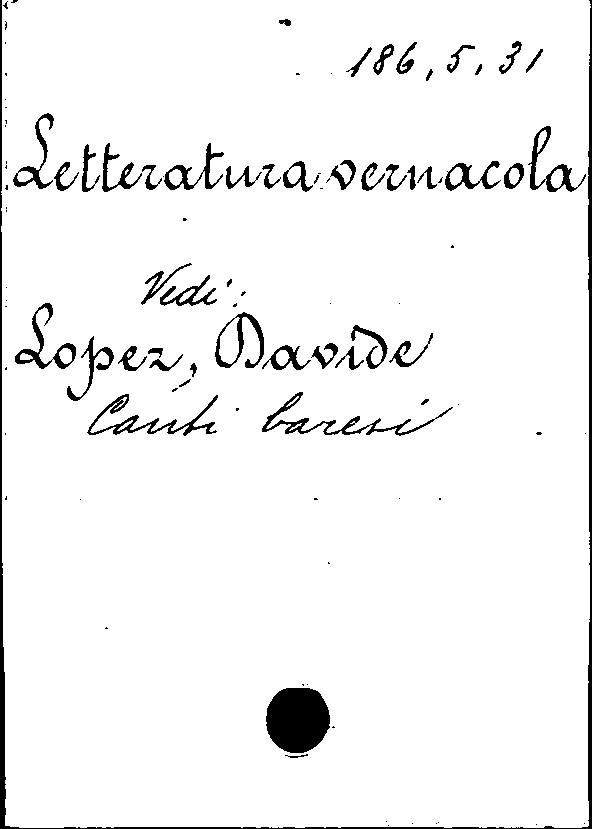 186, 5, 31
Letteratura vernacola
Vedi:
Lopez, Davide
Canti baresi